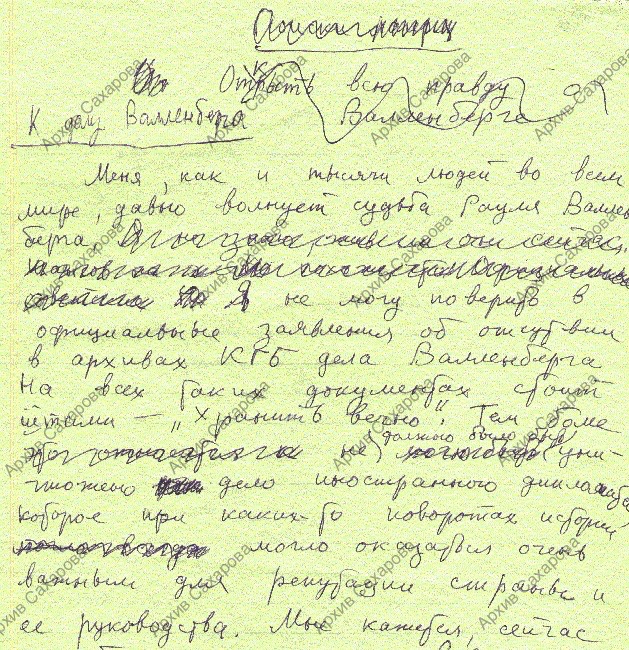 Открыть всю правду о
К делу Валленберга
Валленберге
Меня, как и тысячи людей во всем
мире, давно волнует судьба Рауля Валлен
берга.
Я не могу поверить в
официальные заявления об отсутствии
в архивах КГБ дела Валленберга
На всех таких документах стоит
штамп — „Хранить вечно". Тем более
не должно было быть уни-
чтожено дело иностранного дипломата
которое при каких-то поворотах истории
могло оказаться очень
важным для репутации страны и
ее руководства. Мне кажется, сейчас
Архив Сахарова